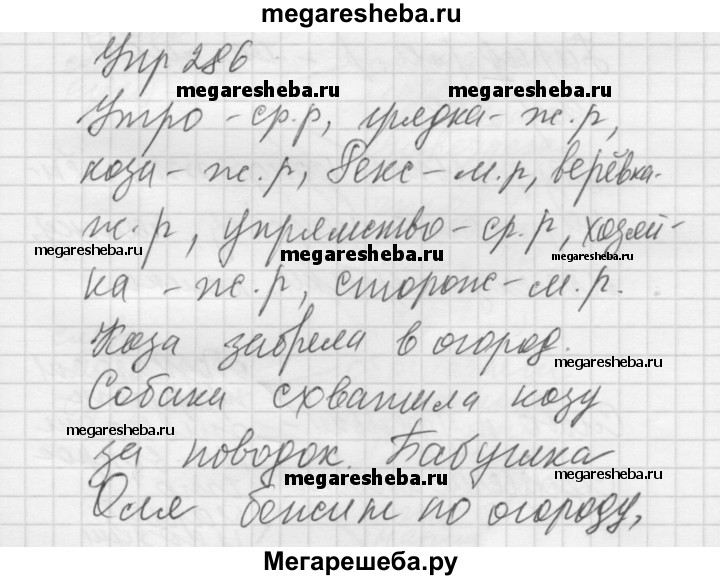 megaresheba.ru
Упр 286
megaresheba.ru megaresheba.ru
Утро - ср.р, грядка - ж.р,
коза - ж.р, Рекс - м.р, верёвка -
ж.р, упрямство - ср.р, хозяй-
megaresheba.ru megaresheba.ru megaresheba.ru
ка - ж.р, сторож - м.р.
Коза забрела в огород.
megaresheba.ru
Собака схватила козу
megaresheba.ru
за поводок. Бабушка
megaresheba.ru megaresheba.ru
Оля бежит по огороду,
Мегарешеба.ру